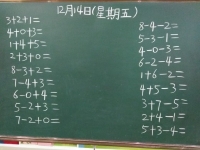 12月14日(星期五)
3+2+1=
4+0+3=
1+4+5=
2+3+0=
8-3+2=
7-4+3=
6-0+4=
5-2+3=
7-2+0=
8-4-2=
5-3-1=
4-0-3=
6-2-4=
1+6-2=
4+5-3=
3+7-5=
2+4-1=
5+3-4=